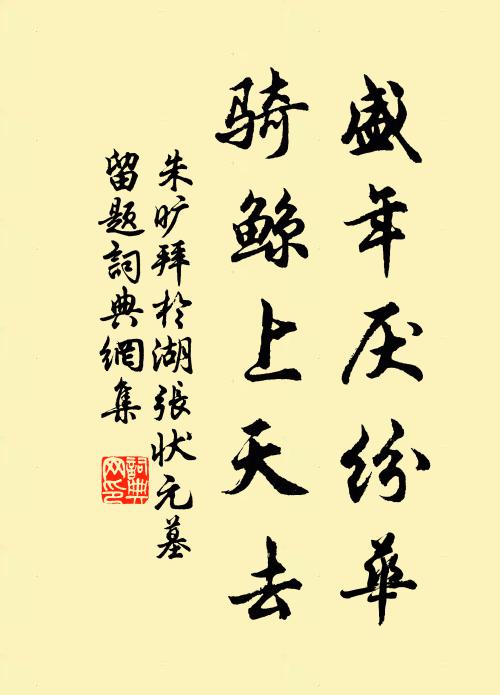 盛年厌纷华
骑鲸上天去
朱旷拜於湖張状元墓
留题詞典網集
詞典
网印